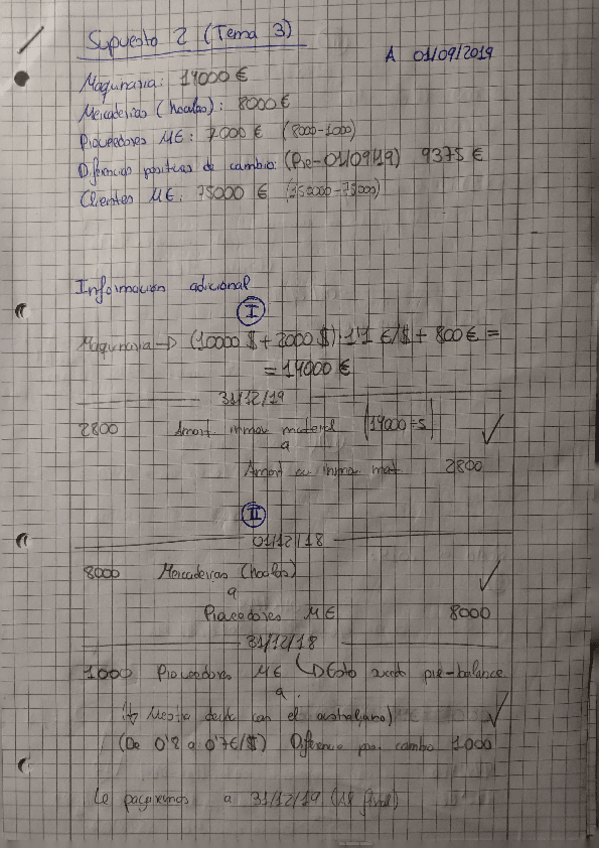 Supuesto 2 (Tema 3)
A 01/09/2019
Maquinaria: 14000 €
Mercaderías (hoolas): 8000 €
Proveedores ME: 7000 € (8000-1000)
Diferencias positivas de cambio: (Pre-01/09/19) 9375 €
Clientes ME: 75000 €
Información adicional
I
Maquinaria → (10000 $ + 2000 $) · 1'1 €/$ + 800 € =
= 14000 €
31/12/19
2800 Amort. inmov material (14000÷5)
a
Amort ac inmov mat 2800
II
01/12/18
8000 Mercaderías (hoolas)
a
Proveedores ME 8000
31/12/18
1000 Proveedores ME → Esto sucede pre-balance
a
deuda con el australiano)
(De 0'8 a 0'7 €/$) Diferencia por cambio 1000
Le pagaremos a 31/12/19